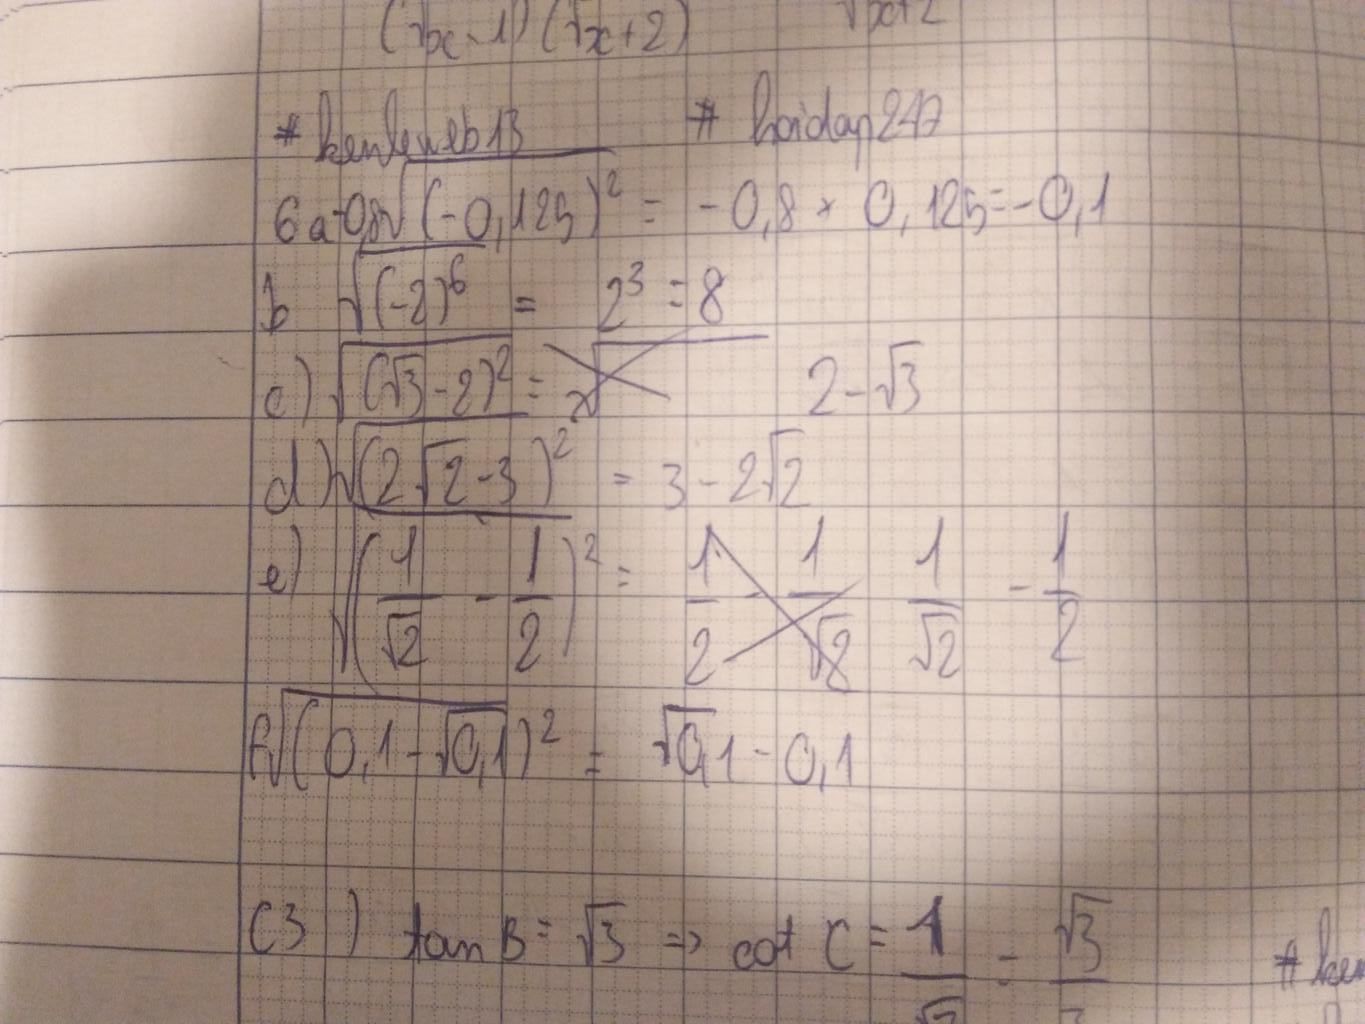 (√x-1)(√x+2) √x+2
# kenleweb13 # hoidap247
6 a -0,8√(-0,125)² = -0,8 × 0,125 = -0,1
b √(-2)⁶ = 2³ = 8
c) √(√3-2)² = 2-√3
d) √(2√2-3)² = 3-2√2
e) √(1/√2 - 1/2)² = 1/2 - 1/√2 1/√2 - 1/2
f √(0,1-√0,1)² = √0,1-0,1
C3) tan B = √3 => cot C = 1/√3 = √3/3 # ken